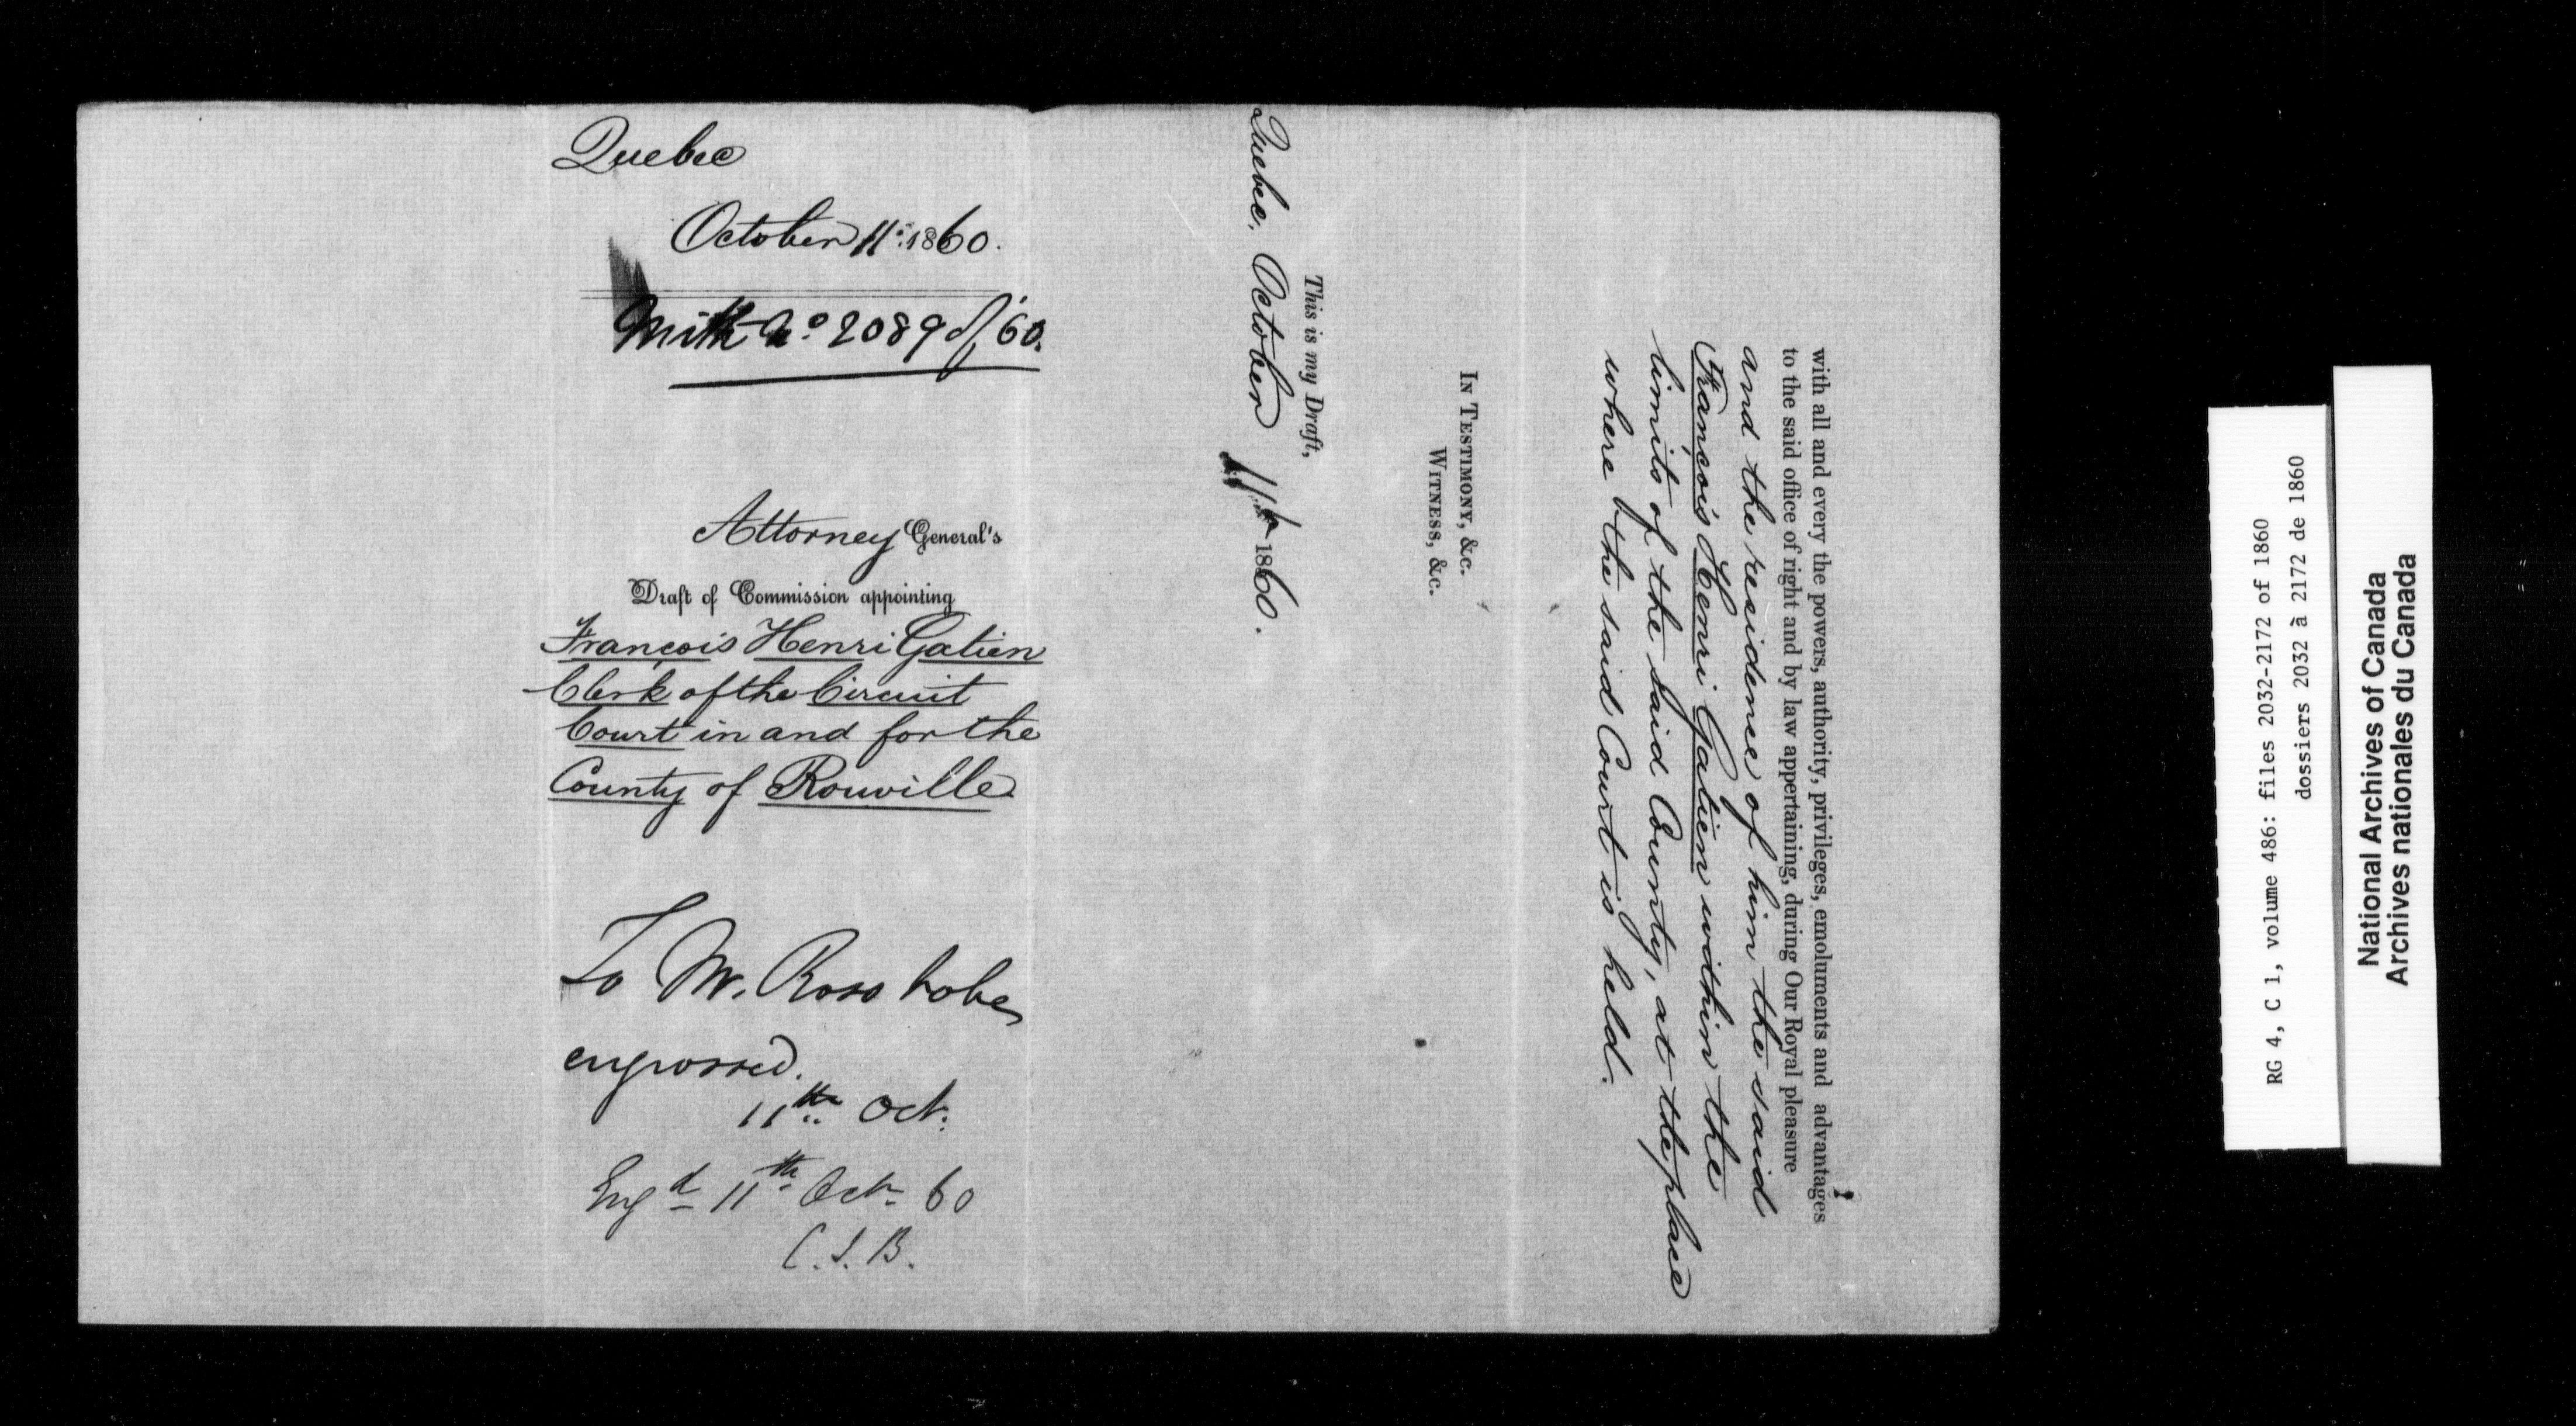 Quebec
October 11th 1860.
With No 2089 of '60.
Attorney General's
Draft of Commission appointing
François Henri Gatien
Clerk of the Circuit
Court in and for the
County of Rouville
To Mr. Ross to be
engrossed.
11th Oct.
Engd 11th Oct 60
C. J. B.
with all and every the powers, authority, privileges, emoluments and advantages
to the said office of right and by law appertaining, during Our Royal pleasure
and the residence of him the said
François Henri Gatien within the
limits of the said County, at the place
where the said Court is held.
IN TESTIMONY, &c.
WITNESS, &c.
This is my Draft,
Quebec, October 11th 1860.
RG 4, C 1, volume 486: files 2032-2172 of 1860
dossiers 2032 à 2172 de 1860
National Archives of Canada
Archives nationales du Canada